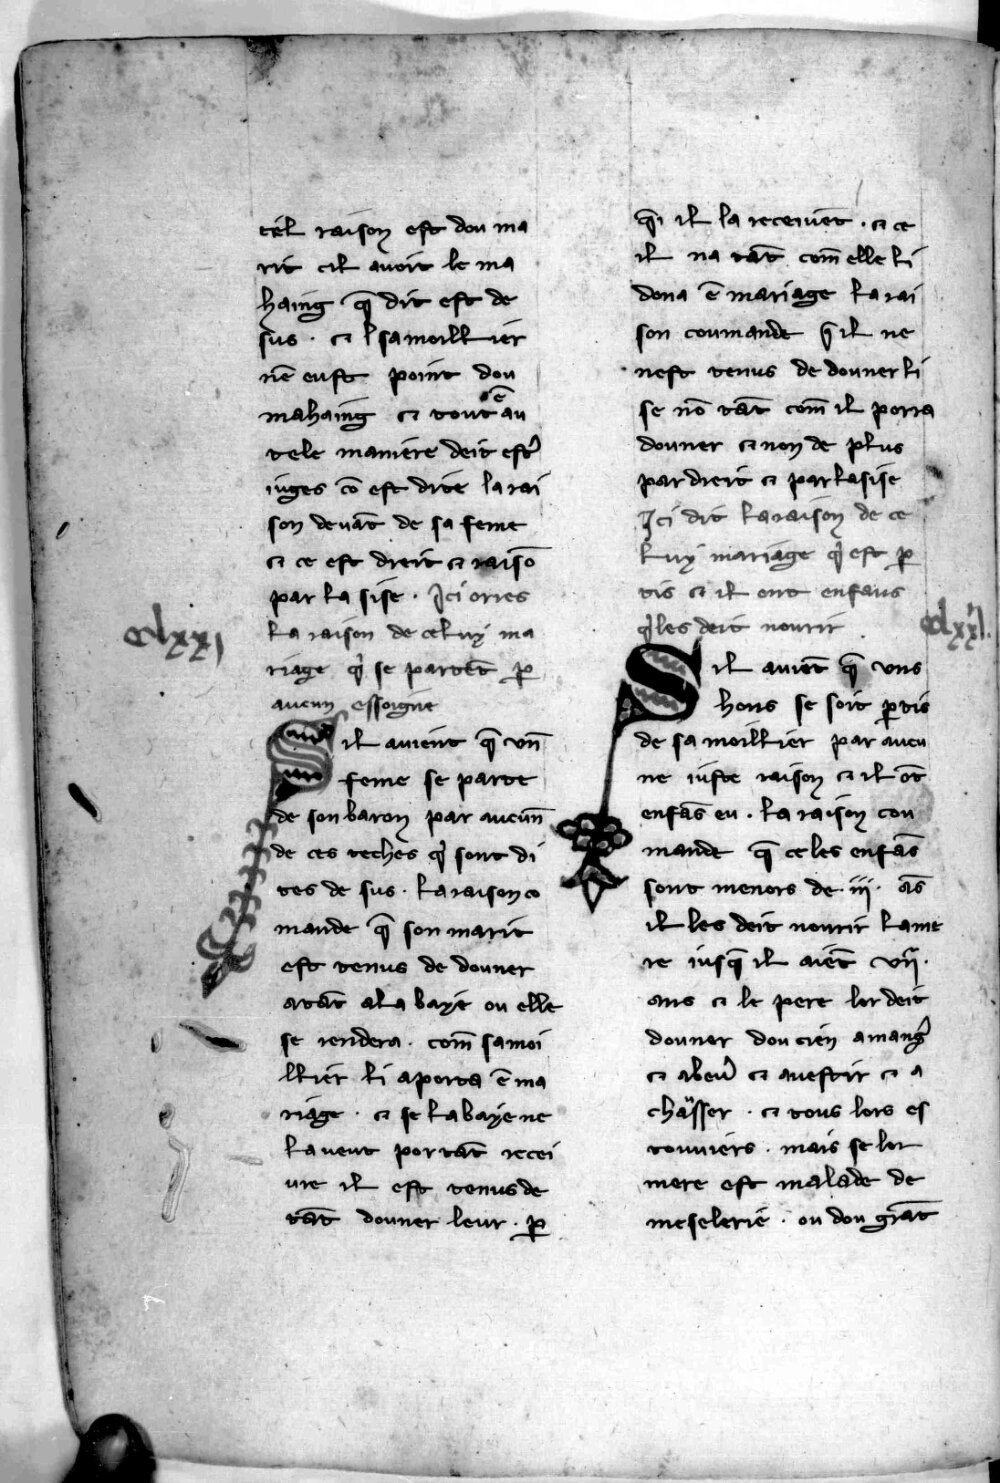 tel raison est dou ma
rit cil avoit le ma
haing q̃ dit est de
sus · et l sa moillier
nẽ eust point dou
mahaing et tout ẽ au
tele maniere deit estr̉
iuges cõ est dite la rai
son devãt de sa feme
et ce est dreit et raisõ
par la sise · Ici orres
la raison de celuy ma
riage qi se partẽt p̱
aucun essoigne
cclxxi
S il avient q̃ vñ
feme se parte
de son baron par aucuñ
de ces teches qi sont di
tes de sus · la raison co
mande q̃ son marit
est tenus de donner
atãt a la baye ou elle
se rendera · com̃ sa moi
llier li aporta ẽ ma
riage · et se la baye ne
la veut por tãt recei
vre il est tenus de
tãt douner leur · p̱
q̃i il la receivẽt · et ce
il na tãt com̃ elle li
dona ẽ mariage la rai
son coumande q̃ il ne
nest tenus de douner li
se nõ tãt com̃ il porra
douner et non de plus
par dreit et par lasise
Ici dit la raison de ce
luy mariage qi est p̱
tis et il ont enfans
qi les deit nourir
cclxxii
S il aviẽt q̃ uns
hons se soit p̱tis
de sa moillier par aucu
ne iuste raison et il õt
enfãs eu · la raison cou
mande q̃ celes enfãs
sont menors de · iii · ãs
il les deit nourir la me
re iusq̃ il aiẽt vii ·
ans et le pere lor deit
douner dou cien a mangỉ
et abevr̉ et a vestir et a
chausser · et tous lors es
touviers · mais se lor
mere est malade de
meselerie · ou dou grãt